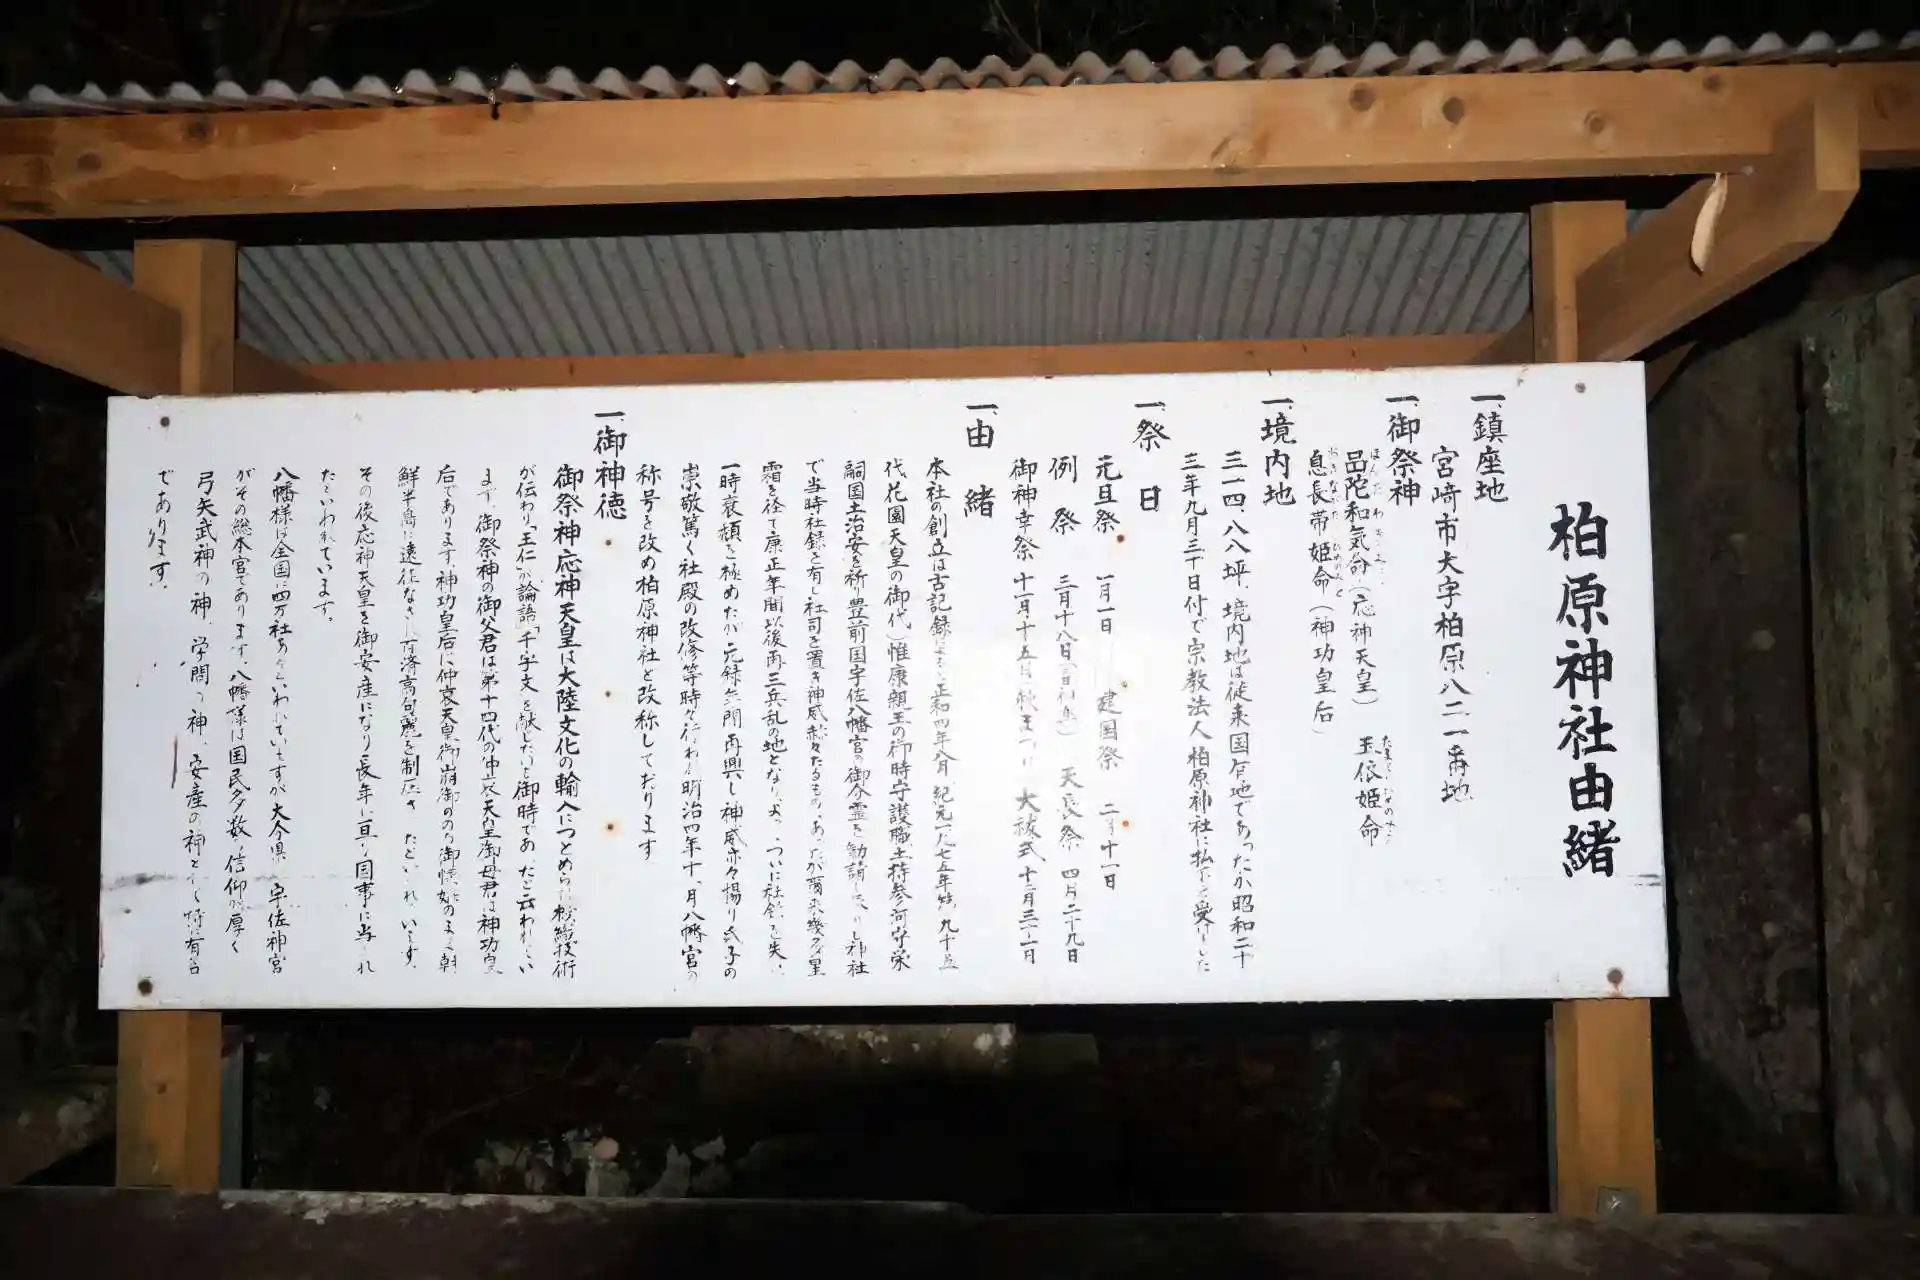 柏原神社由緒
一、鎮座地
宮崎市大字柏原八二一番地
一、御祭神
品陀和気命（応神天皇） 玉依姫命
息長帯姫命（神功皇后）
一、境内地
三一四、八八坪、境内地は従来国有地であったが昭和二十
三年九月三十日付で宗教法人柏原神社に払下を受けした
一、祭 日
元旦祭 一月一日 建国祭 二月十一日
例 祭 三月十八日 天長祭 四月二十九日
御神幸祭 十一月十五日（秋まつり） 大祓式 十二月三十一日
一、由 緒
本社の創立は古記録による正和四年八月、紀元一九七五年 九十五
代花園天皇の御代）惟康親王の御時守護職土持参河守栄
嗣国土治安を祈り豊前国宇佐八幡宮の御分霊を勧請 し神社
で当時社録を有し社司を置き神威赫々たるもの、あったが爾来幾多星
霜を径て康正年間以後再三兵乱の地となり ついに社録を失い
一時衰頽を極めたが元録年間再興し神威亦々揚り氏子の
崇敬篤く社殿の改修等時々行われ明治四年十一月八幡宮の
称号を改め柏原神社と改称しております
一、御神徳
御祭神応神天皇は大陸文化の輸入につとめられ 技術
が伝わり「王仁」が論語「千字文」を献じたのも御時であったと云われてい
ます、御祭神の御父君は第十四代の仲哀天皇御母君は神功皇
后であります、神功皇后は仲哀天皇御崩御ののち御懐妊のまま朝
鮮半島に遠征なされ百済高句麗を制圧されたといわれています、
その後応神天皇を御安産になり長年に亘り国事に当られ
たといわれています。
八幡様は全国に四万社あるといわれていますが大分県 宇佐神宮
がその総本宮であります、八幡様は国民多数の信仰が厚く
弓矢武神の神、学問の神、安産の神として特に有名
であります。